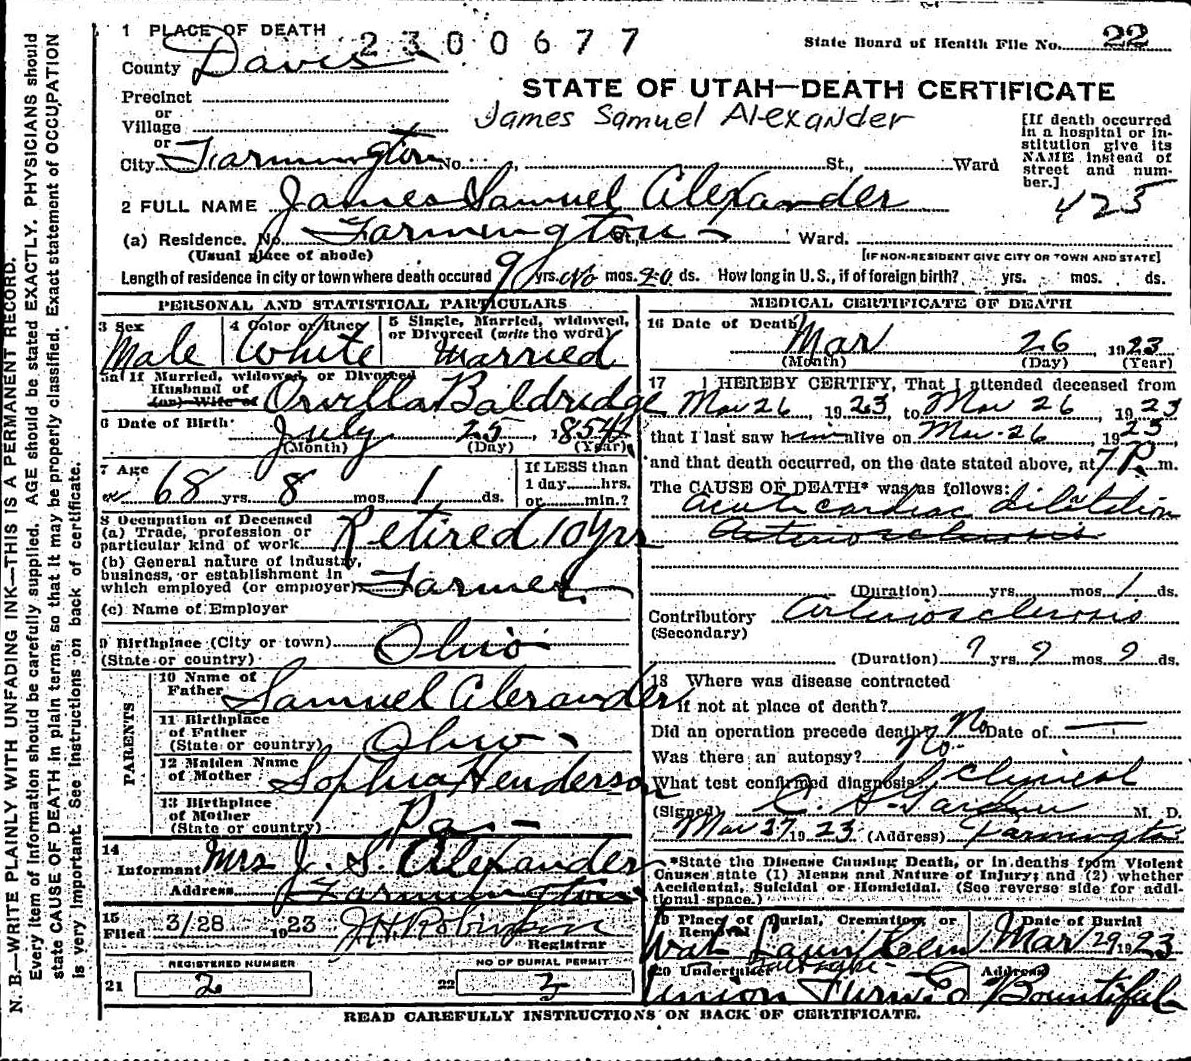 1 PLACE OF DEATH 2300677
State Board of Health File No. 22
County Davis
STATE OF UTAH—DEATH CERTIFICATE
Precinct
James Samuel Alexander
or
Village
or
City Farmington No. St., Ward
[If death occurred
in a hospital or in-
stitution give its
NAME instead of
street and num-
ber.]
2 FULL NAME James Samuel Alexander
423
(a) Residence. No. Farmington St., Ward.
(Usual place of abode) [IF NON-RESIDENT GIVE CITY OR TOWN AND STATE]
Length of residence in city or town where death occured 9 yrs. No mos. 20 ds. How long in U. S., if of foreign birth? yrs. mos. ds.
PERSONAL AND STATISTICAL PARTICULARS
3 Sex
Male
4 Color or Race
White
5 Single, Married, widowed,
or Divorced (write the word)
Married
5a If Married, widowed, or Divorced
Husband of
(or) Wife of Orvilla Baldridge
6 Date of Birth July 25, 1854
(Month) (Day) (Year)
7 Age
68 yrs. 8 mos. 1 ds.
If LESS than
1 day hrs.
or min.?
8 Occupation of Deceased
(a) Trade, profession or
particular kind of work Retired 10 yrs
(b) General nature of industry,
business, or establishment in
which employed (or employer) Farmer
(c) Name of Employer
9 Birthplace (City or town)
(State or country) Ohio
PARENTS
10 Name of
Father Samuel Alexander
11 Birthplace
of Father
(State or country) Ohio
12 Maiden Name
of Mother Sophia Henderson
13 Birthplace
of Mother
(State or country) Pa
14
Informant Mrs J. S. Alexander
Address Farmington
15
Filed 3/28 1923 J.H. Robinson
Registrar
REGISTERED NUMBER
21 2
NO OF BURIAL PERMIT
22 3
MEDICAL CERTIFICATE OF DEATH
16 Date of Death
Mar 26, 1923
(Month) (Day) (Year)
17 I HEREBY CERTIFY, That I attended deceased from
Mar 26, 1923, to Mar 26, 1923
that I last saw him alive on Mar. 26, 1923
and that death occurred, on the date stated above, at 7 P. m.
The CAUSE OF DEATH* was as follows:
Acute cardiac dilatation
Arteriosclerosis
(Duration) yrs. mos. 1 ds.
Contributory Arteriosclerosis
(Secondary)
(Duration) ? yrs. ? mos. ? ds.
18 Where was disease contracted
if not at place of death?
Did an operation precede death? No Date of —
Was there an autopsy? No.
What test confirmed diagnosis? Clinical
(Signed) M. D.
Mar 27, 1923 (Address) Farmington
*State the Disease Causing Death, or in deaths from Violent
Causes state (1) Means and Nature of Injury; and (2) whether
Accidental, Suicidal or Homicidal. (See reverse side for addi-
tional space.)
19 Place of Burial, Cremation or
Removal
Wat Lawn Cem
Date of Burial
Mar 29, 1923
20 Undertaker
Union Furn Co
Address
Bountiful
READ CAREFULLY INSTRUCTIONS ON BACK OF CERTIFICATE.
N. B.—WRITE PLAINLY WITH UNFADING INK—THIS IS A PERMANENT RECORD.
Every item of information should be carefully supplied. AGE should be stated EXACTLY. PHYSICIANS should
state CAUSE OF DEATH in plain terms, so that it may be properly classified. Exact statement of OCCUPATION
is very important. See instructions on back of certificate.